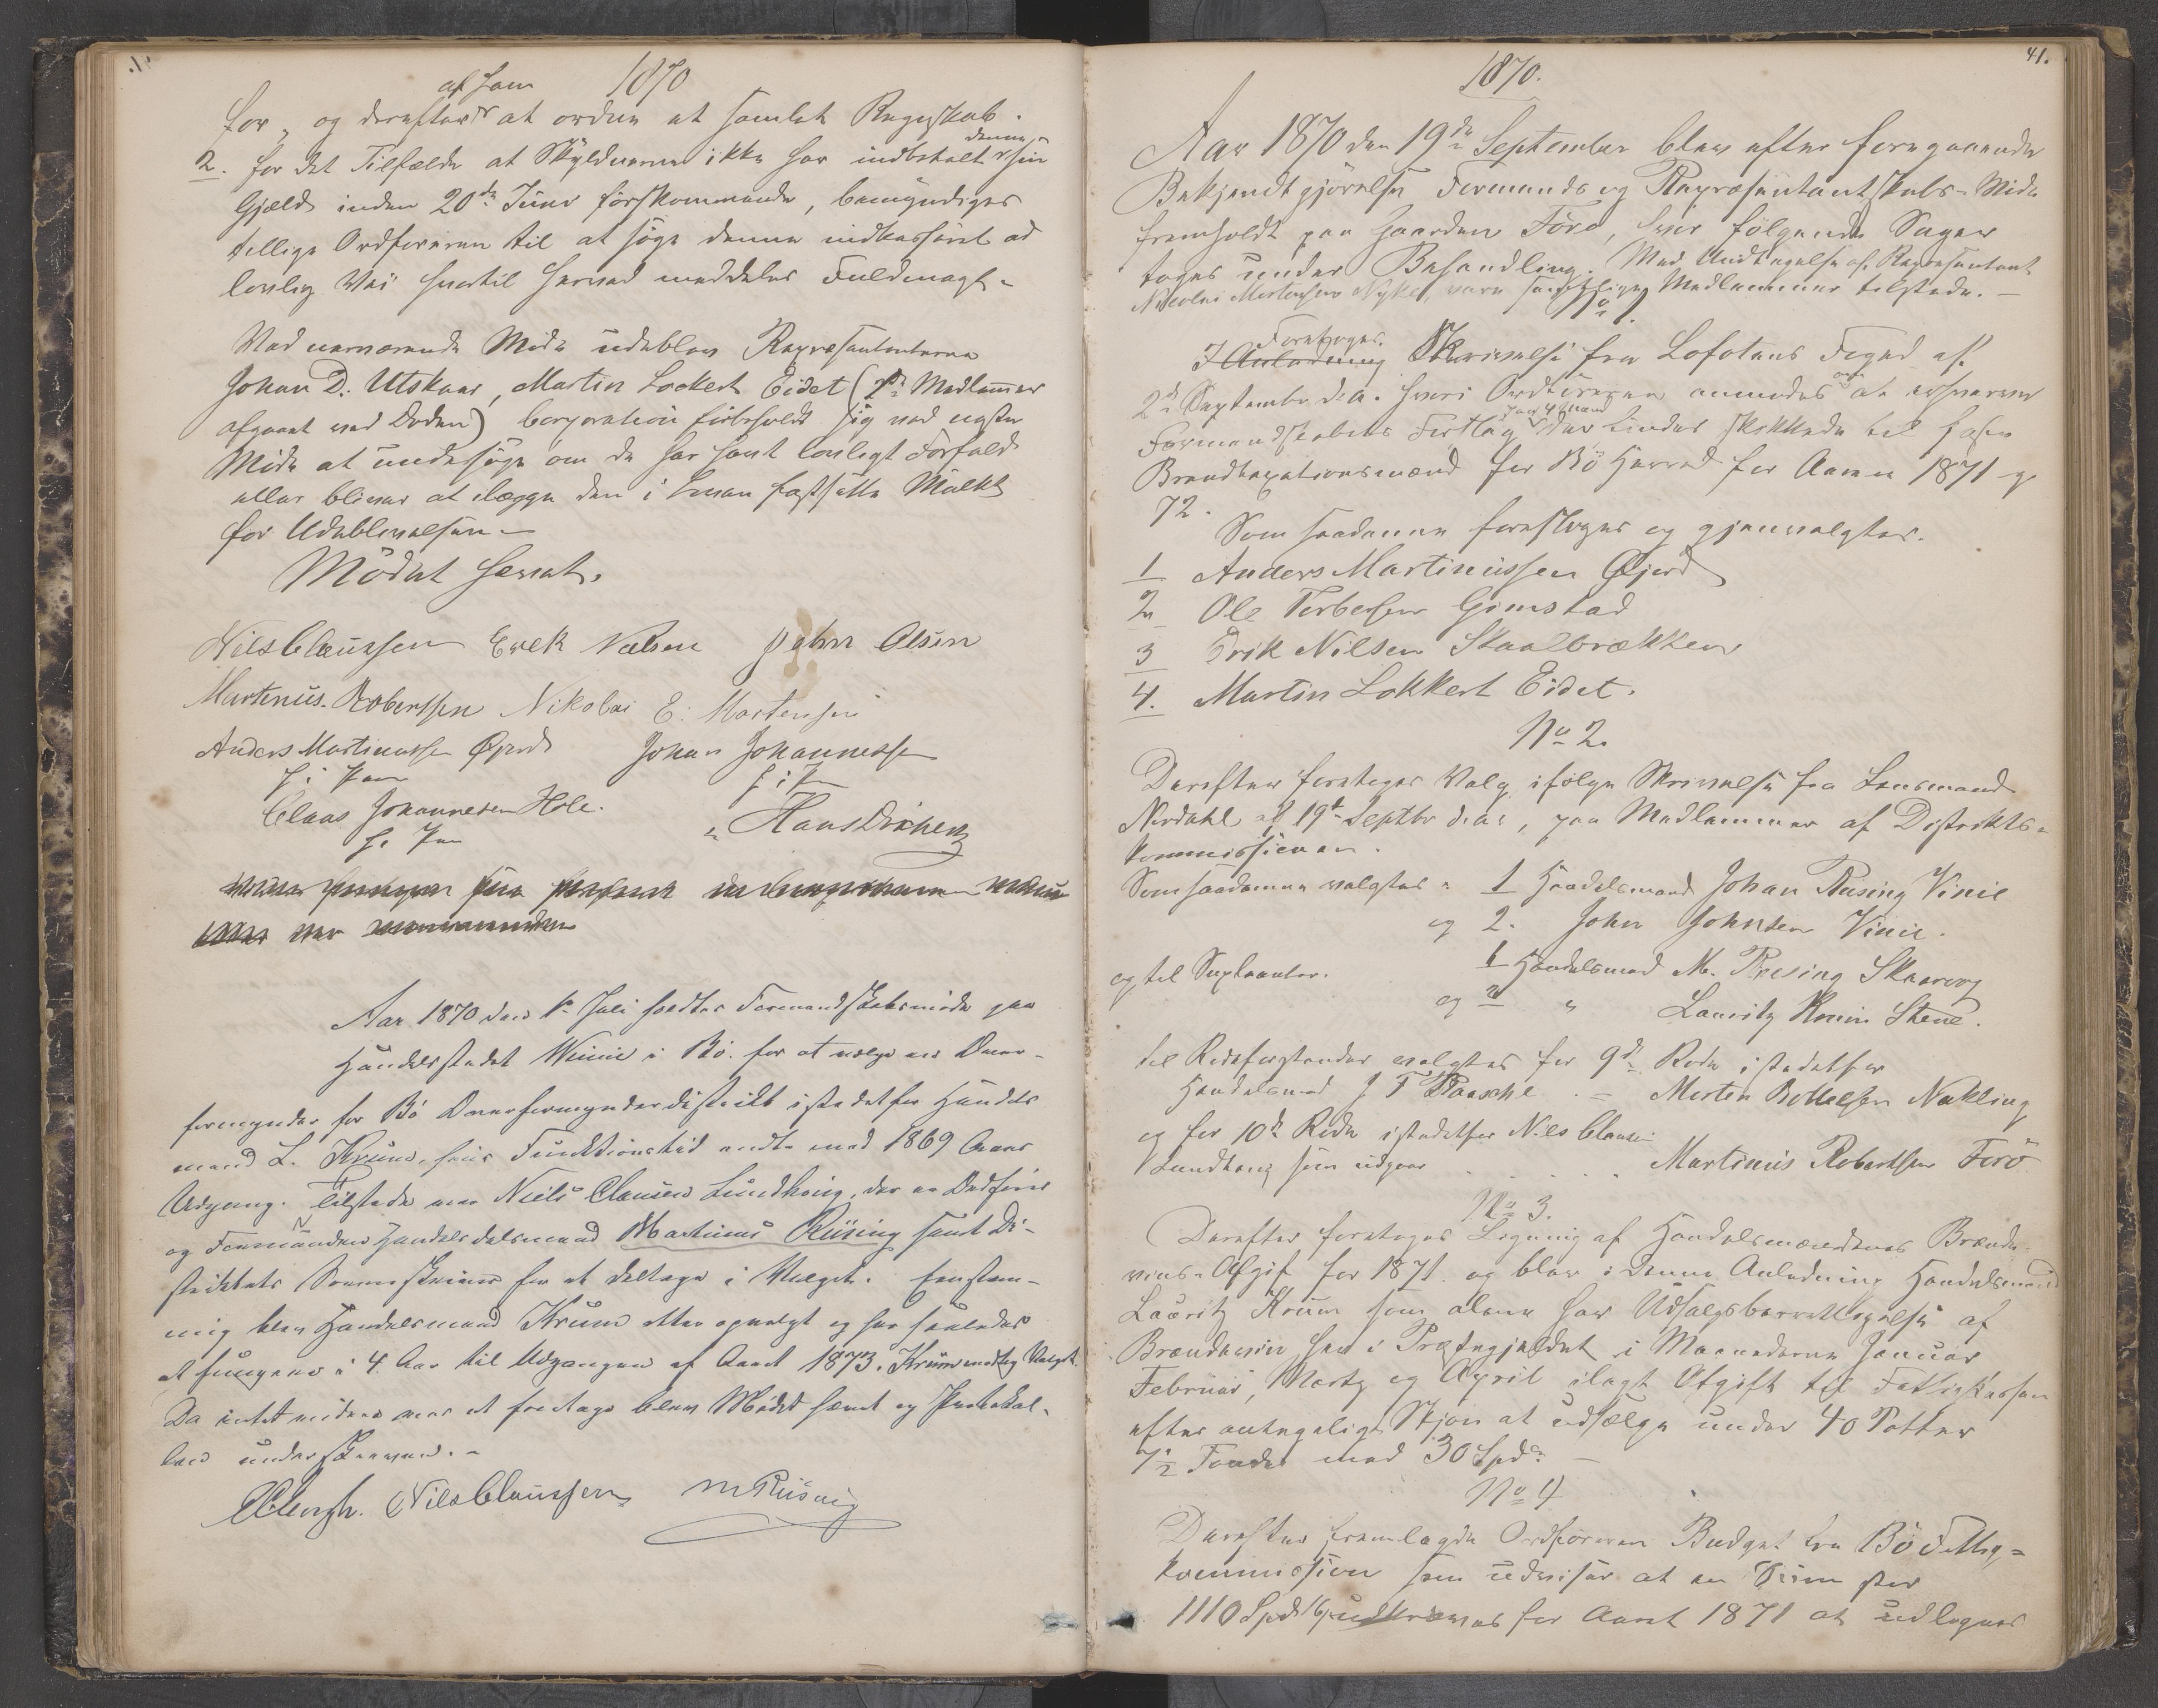 1870
af ham
for, og derefter at ordne et samlet Regnskab.
denne
2. for det Tilfælde at Skyldnerne ikke har indbetalt sin
Gjæld inden 20de Juni førstkommende, bemyndiges
tillige Ordføreren til at søge denne indkasseret ad
lovlig Vei hvortil herved meddeles Fuldmagt.
Ved nærværende Møde udeblev Repræsentanterne
Johan D. Utskaar, Martin Lockert Eidet (1de Medlemmer
afgaaet ved Døden) Corporation forbeholdt sig ved næste
Møde at undersøge om de har havt lovligt Forfald
eller bliver at ilægge den i Loven fastsatte Mulkt
for Udeblivelsen.
Mødet hævet.
Nils Claussen Erek Nielsen Johan Olsen
Martinus. Robertsen Nikolai E. Mortensen
Anders Martinussen Øjord Johan Johannessen
Claas Johannesen Hole.
Hans Dricher
Aar 1870 den 1te Juli holdtes Formandskabsmøde paa
Handelsstedet Winie i Bø. for at vælge en Over-
formynder for Bø Overformynderdistrikt istedetfor Handels
mand L. Krum, hvis Funktionstid endte med 1869 Aars
Udgang. Tilstede var Niels Clausen Lundhoug, der er Ordfører
og Formanden Handelsdelsmand Martinus Riising samt Di-
striktets Sorenskriver for at deltage i Valget. Eenstem-
mig blev Handelsmand Krum atter opvalgt og har saaledes
at fungere i 4 Aar til Udgangen af Aaret 1873. Krum modtog Valget.
Da intet videre var at foretage blev Mødet hævet og Protokol-
len underskreven.
Nils Claussen M Riising
41.
1870.
Aar 1870 den 19de September blev efter foregaaende
Bekjendtgjørelse Formands og Repræsentantskabs-Møde
fremholdt paa Gaarden Førø, hvor følgende Sager
toges under Behandling. Med Undtagelse af Repræsentant
Nicolai Mortensen Nykel, vare samtlige Medlemmer tilstede.
No 1.
Foretoges
I Anledning Skrivelse fra Lofotens Foged af
2de September d. A. hvori Ordføreren anmodes om at erhværve
Formandskabets Forslag paa 4 Mænd der findes skikkede til Hosen
Brandtaxationsmænd for Bø Herred for Aarene 1871 og
72.
Som saadanne foresloges og gjenvalgtes.
1 Anders Martinussen Øjord
2 Ole Torbersen Gimstad
3 Erik Nilsen Skaalbrækken
4. Martin Lokkert Eidet.
No 2.
Derefter foretoges Valg ifølge Skrivelse fra Lensmand
Nordahl af 19de Septbr d. A., paa Medlemmer af Distrikts-
kommissionen.
Som saadanne valgtes 1 Handelsmand Johan Riising Vinie
og 2. John Johnsen Vinie.
og til Suplianter. 1 Handelsmand M. Riesing Skaarvog
og 2 " Lauritz Krum Stene.
til Rodeforstander valgtes for 9de Rode istedetfor
Handelsmand J F Paasche - Morten Bottolfsen Nækling
og for 10de Rode istedetfor Nils Clausen
Lundhoug som udgaar Martinus Robertsen Førø
No 3.
Derefter foretoges Ligning af Handelsmændenes Brænde-
vins-Afgift for 1871. og blev i denne Anledning Handelsmand
Lauritz Krum som alene har Udsalgsberettigelse af
Brændeviin her i Præstegjeldet i Maanederne Januar
Februar, Marts og April ilagt Afgift til Fattigkassen
efter antageligt Skjøn at udsælge under 40 Potter
7½ Fonder med 30 Spd.
No 4
Derefter fremlagde Ordføreren Budget fra Bø Fattig-
kommission som udviser at en Sum stor
1110 Spd udkræves for Aaret 1871 at udlignes